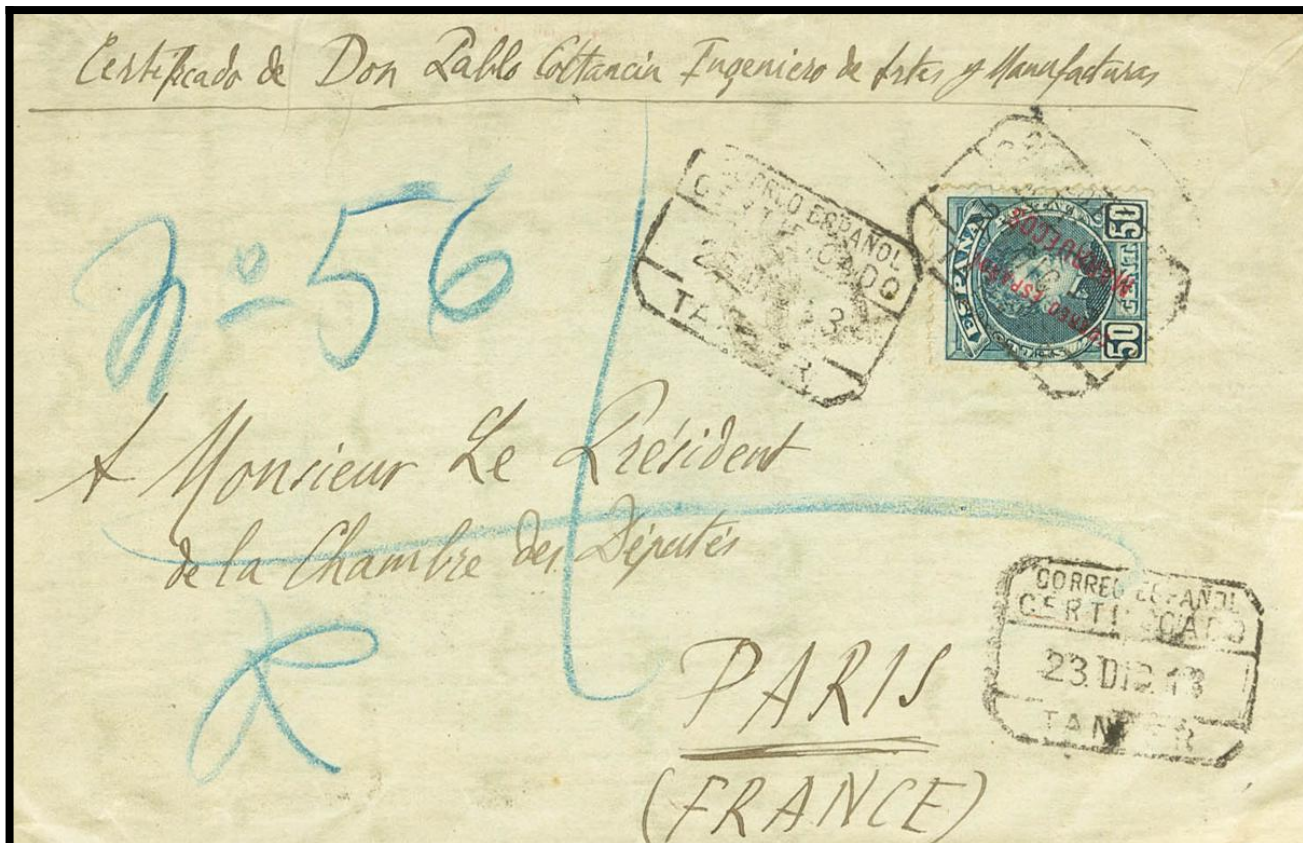 Certificado de Don Pablo Cottancin Ingeniero de Artes y Manufacturas
nº 56
CORREO ESPAÑOL
CERTIFICADO
23 DIC 13
TANGER
ESPAÑA
50 CENT 50
CORREO ESPAÑOL
MARRUECOS
A Monsieur Le Président
de la Chambre des Députés
R
PARIS
(FRANCE)
CORREO ESPAÑOL
CERTIFICADO
23 DIC 13
TANGER